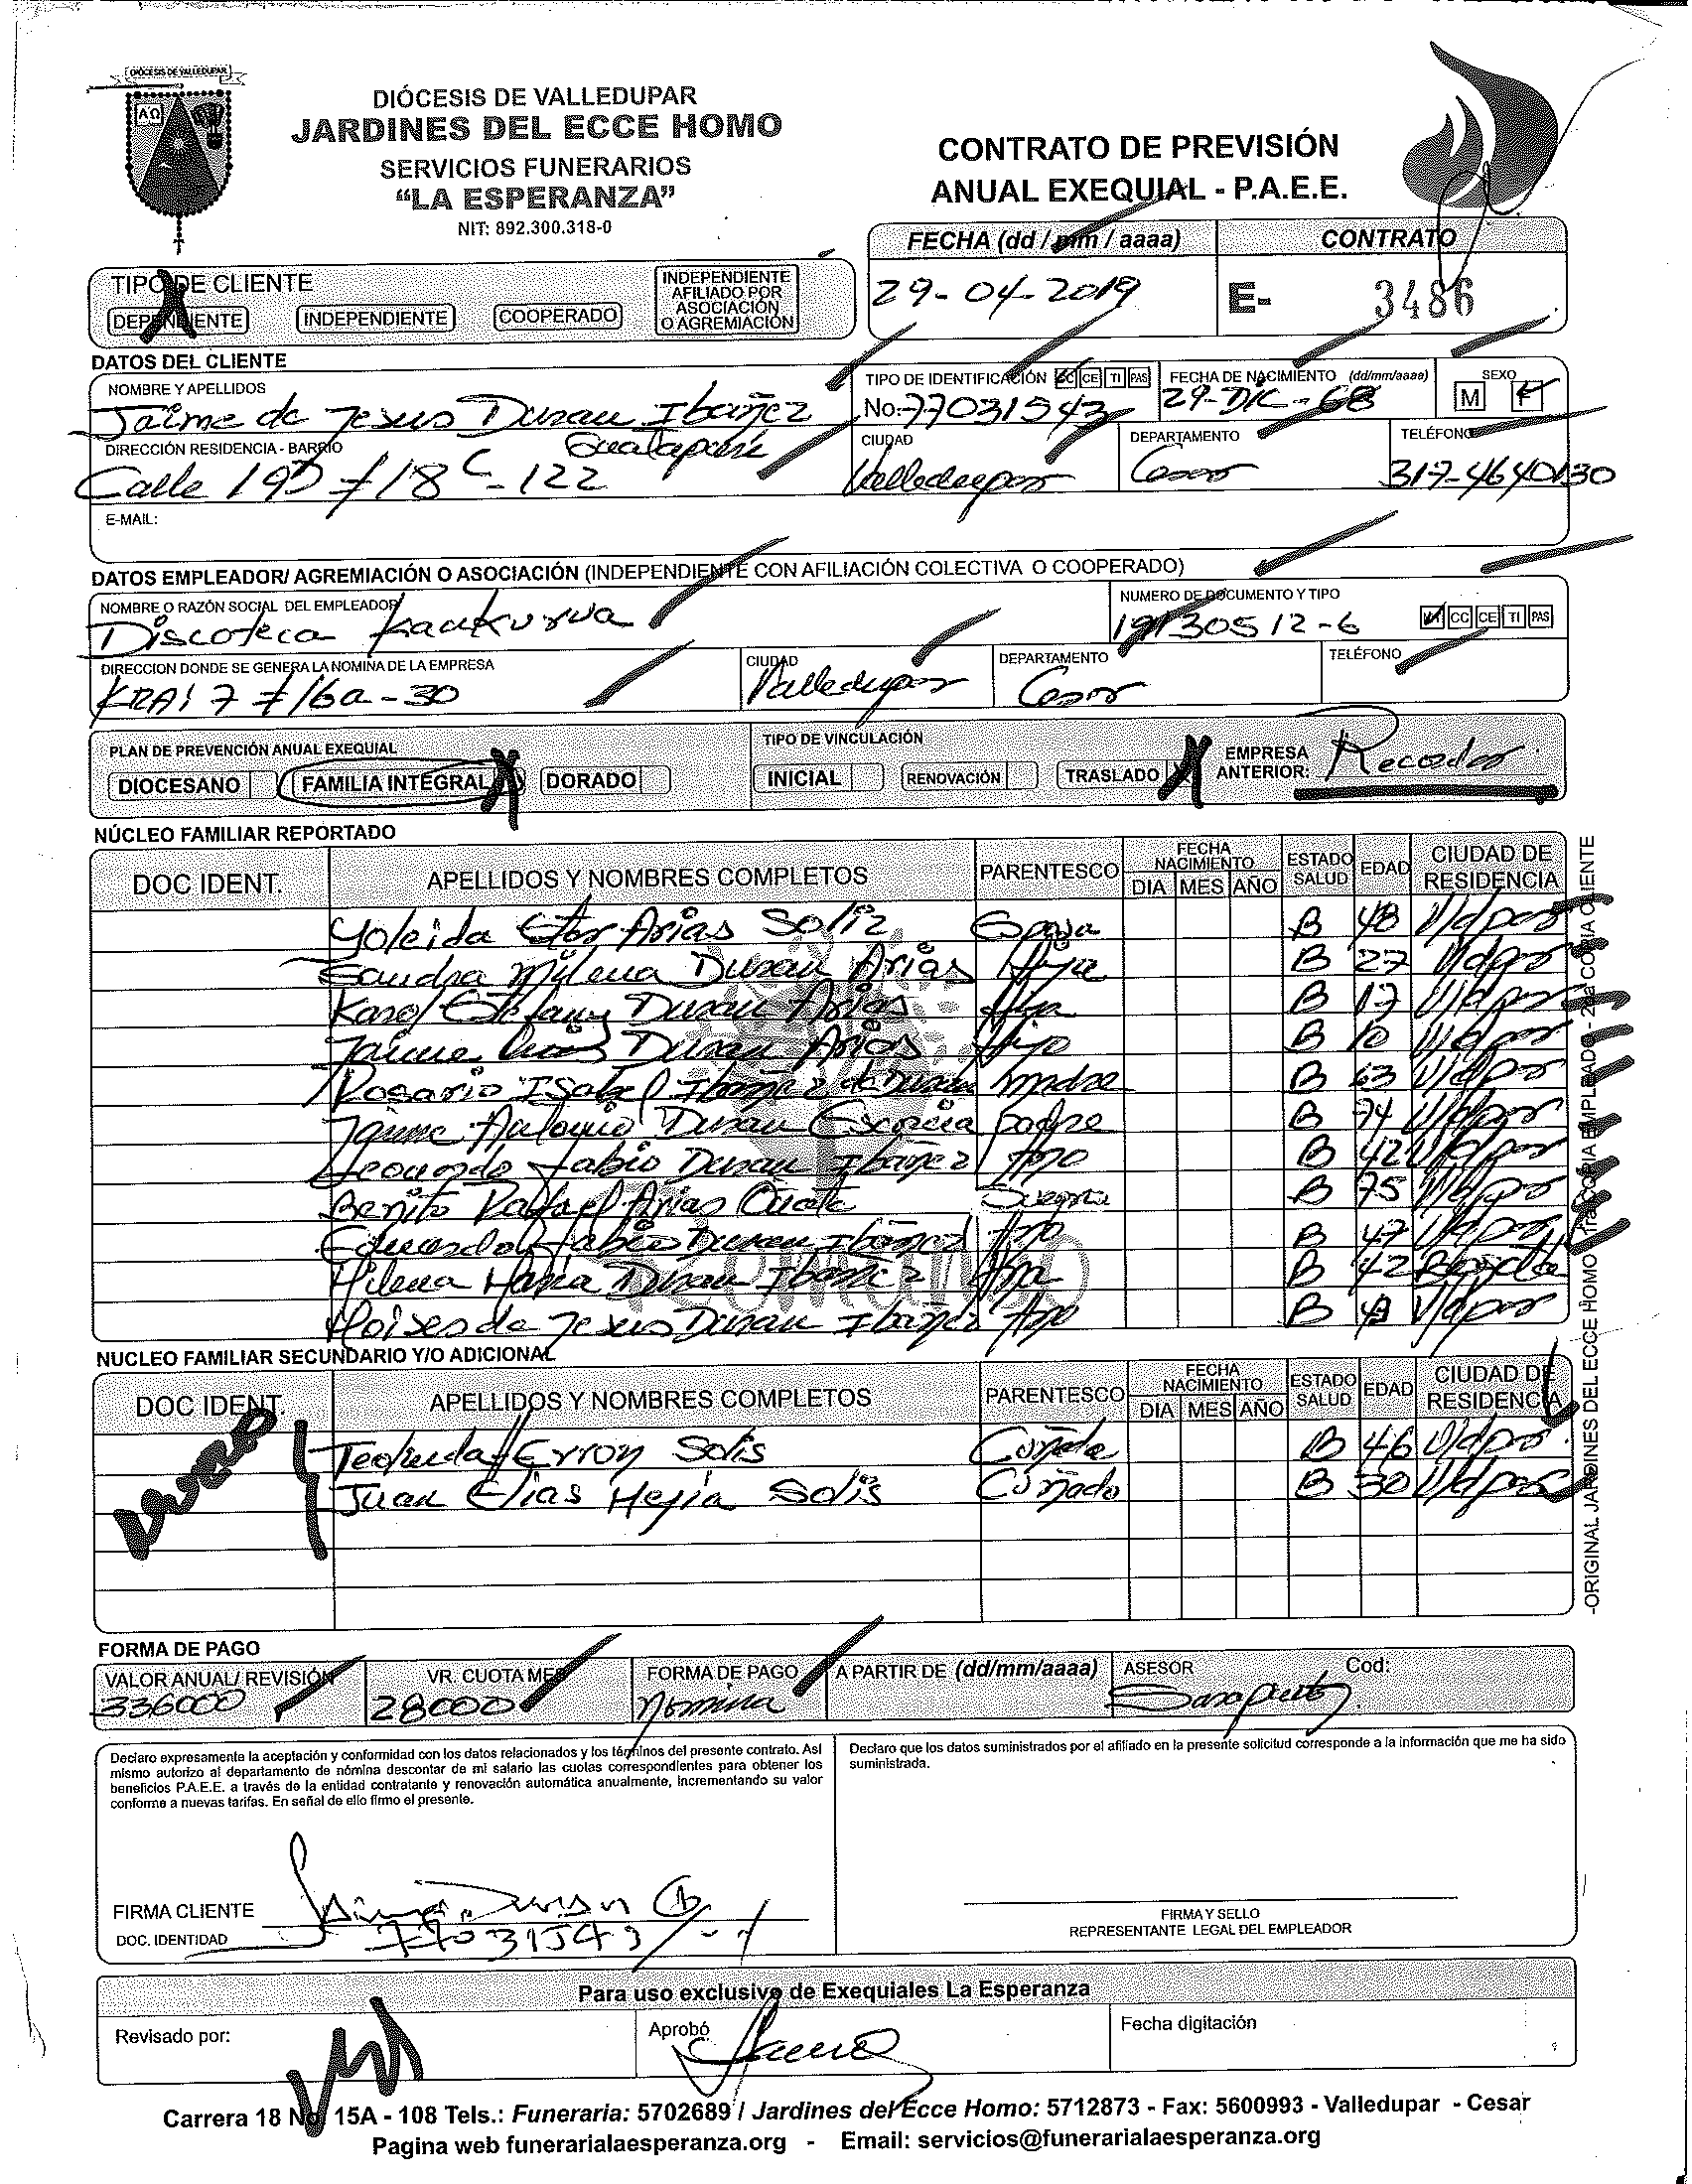 DIÓCESIS DE VALLEDUPAR
DIÓCESIS DE VALLEDUPAR
JARDINES DEL ECCE HOMO
SERVICIOS FUNERARIOS
“LA ESPERANZA”
NIT: 892.300.318-0
CONTRATO DE PREVISIÓN
ANUAL EXEQUIAL - P.A.E.E.
FECHA (dd / mm / aaaa) CONTRATO
29-04-2019 E- 3486
TIPO DE CLIENTE
DEPENDIENTE INDEPENDIENTE COOPERADO INDEPENDIENTE AFILIADO POR ASOCIACIÓN O AGREMIACIÓN
DATOS DEL CLIENTE
NOMBRE Y APELLIDOS TIPO DE IDENTIFICACIÓN CC CE TI PAS FECHA DE NACIMIENTO (dd/mm/aaaa) SEXO
Jaime de Jesus Duran Ibañez No: 77031543 29-DIC-68 M F
DIRECCIÓN RESIDENCIA - BARRIO CIUDAD DEPARTAMENTO TELÉFONO
Calle 19D # 18C-122 Guatapurí Valledupar Cesar 317-4640130
E-MAIL:
DATOS EMPLEADOR/ AGREMIACIÓN O ASOCIACIÓN (INDEPENDIENTE CON AFILIACIÓN COLECTIVA O COOPERADO)
NOMBRE O RAZÓN SOCIAL DEL EMPLEADOR NUMERO DE DOCUMENTO Y TIPO
Discoteca 19130512-6 CC CE TI PAS
DIRECCION DONDE SE GENERA LA NOMINA DE LA EMPRESA CIUDAD DEPARTAMENTO TELÉFONO
KRA 17 # 16a-30 Valledupar Cesar
PLAN DE PREVENCIÓN ANUAL EXEQUIAL TIPO DE VINCULACIÓN
DIOCESANO FAMILIA INTEGRAL X DORADO INICIAL RENOVACIÓN TRASLADO X EMPRESA ANTERIOR: Recordar
NÚCLEO FAMILIAR REPORTADO
DOC IDENT. APELLIDOS Y NOMBRES COMPLETOS PARENTESCO FECHA NACIMIENTO DIA MES AÑO ESTADO SALUD EDAD CIUDAD DE RESIDENCIA
Yoleida Ester Arias Soliz Esposa B 48 V/dpar
Sandra Milena Duran Arias Hija B 27 V/dpar
Karol Estefany Duran Arias Hija B 17 V/dpar
Jaime Duran Arias Hijo B 10 V/dpar
Rosario Isabel Ibañez de Duran madre B 63 V/dpar
Jaime Antonio Duran Escorcia padre B 74 V/dpar
Leonardo Fabio Duran Ibañez Hno B 42 V/dpar
Benito Rafael Arias Oñate Suegro B 75 V/dpar
Eduardo Fabio Duran Ibañez Hno B 47 V/dpar
Milena Maria Duran Ibañez Hna B 42 Bogota
Moises de Jesus Duran Ibañez Hno B 49 V/dpar
NUCLEO FAMILIAR SECUNDARIO Y/O ADICIONAL
DOC IDENT. APELLIDOS Y NOMBRES COMPLETOS PARENTESCO FECHA NACIMIENTO DIA MES AÑO ESTADO SALUD EDAD CIUDAD DE RESIDENCIA
Solis Cuñada B 46 V/dpar
Juan Elias Mejia Solis Cuñado B 30 V/dpar
-ORIGINAL JARDINES DEL ECCE HOMO 1ra COPIA EMPLEADO - 2da COPIA CLIENTE
FORMA DE PAGO
VALOR ANUAL/ REVISIÓN VR. CUOTA MES FORMA DE PAGO A PARTIR DE (dd/mm/aaaa) ASESOR Cod:
336000 28000 Nomina
Declaro expresamente la aceptación y conformidad con los datos relacionados y los términos del presente contrato. Así
mismo autorizo al departamento de nómina descontar de mi salario las cuotas correspondientes para obtener los
beneficios P.A.E.E. a través de la entidad contratante y renovación automática anualmente, incrementando su valor
conforme a nuevas tarifas. En señal de ello firmo el presente.
Declaro que los datos suministrados por el afiliado en la presente solicitud corresponde a la información que me ha sido
suministrada.
FIRMA CLIENTE Jaime Duran
DOC. IDENTIDAD 77031543
FIRMA Y SELLO
REPRESENTANTE LEGAL DEL EMPLEADOR
Para uso exclusivo de Exequiales La Esperanza
Revisado por: Aprobó Fecha digitación
Carrera 18 No. 15A - 108 Tels.: Funeraria: 5702689 / Jardines del Ecce Homo: 5712873 - Fax: 5600993 - Valledupar - Cesar
Pagina web funerarialaesperanza.org - Email: servicios@funerarialaesperanza.org